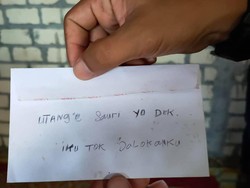 UTANG'E SAURI YO DEK.
IKU TOK SOLOKANKU